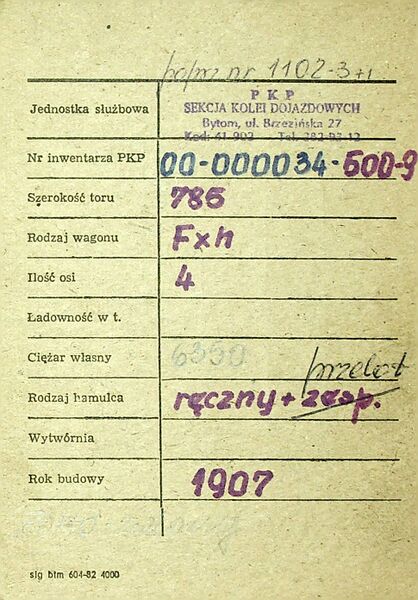 poprz nr 1102-3+1
PKP
Jednostka służbowa SEKCJA KOLEI DOJAZDOWYCH
Bytom, ul. Brzezińska 27
Kod: 41-902 Tel. 382-93-12
Nr inwentarza PKP 00-000034-500-9
Szerokość toru 785
Rodzaj wagonu Fxh
Ilość osi 4
Ładowność w t.
Ciężar własny 6350
przelot
Rodzaj hamulca ręczny + zesp.
Wytwórnia
Rok budowy 1907
slg btm 604-82 4000